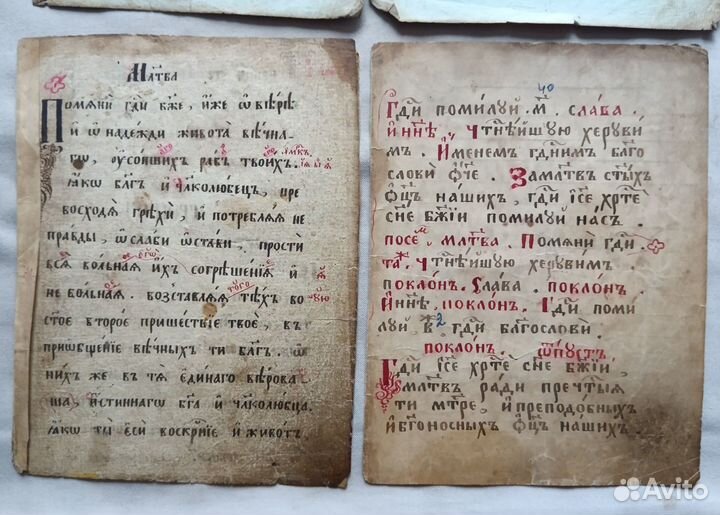 Мл҃тва
Помѧни гд҃и бж҃е, и҆же ѿ вѣрѣ
и҆ ѿ надежди живота вѣчна
гѡ, оу҆сопшихъ раб твоихъ.
ꙗ҆кѡ бл҃гъ и҆ чл҃колюбецъ, пре
восходѧ грѣхи, и҆ потреблѧѧ не
правды, ѿслаби ѿстави, прости
всѧ вольнаѧ и҆хъ согрѣшенїѧ и҆
не вольнаѧ. возставлѧѧ тѣхъ во
ст҃ое второе пришествїе твое, въ
прїѡбщенїе вѣчныхъ ти бл҃гъ.
нихъ же въ тѧ є҆динаго вѣрова
ша, и҆стиннагѡ бг҃а и҆ чл҃колюбца.
ꙗ҆кѡ ты є҆си воскр҃нїе и҆ животъ
40
Гд҃и помилуй м҃. слава.
И҆ нн҃ѣ, Чтн҃ѣйшую херуви
м. И҆менем гд҃ним бл҃го
слови ѻ҆ч҃е. За мл҃твъ ст҃ыхъ
ѻ҆ц҃ъ нашихъ, гд҃и і҆с҃е хр҃те
сн҃е бж҃їи помилуй насъ.
посем мл҃тва. Помѧни гд҃и.
та҆ж. Чтн҃ѣйшую херувимъ.
поклон. Ѕлава. поклон.
И҆ нн҃ѣ, поклон. Гд҃и поми
луй, в҃ж 2 гд҃и бл҃гослови.
поклонъ. ѿпустъ
Гд҃и і҆с҃е хр҃те сн҃е бж҃їи,
мл҃твъ ради пречт҃ыѧ
ти мт҃ре, и҆ преподобныхъ
и҆ бг҃оносныхъ ѻ҆ц҃ъ нашихъ.
Avito